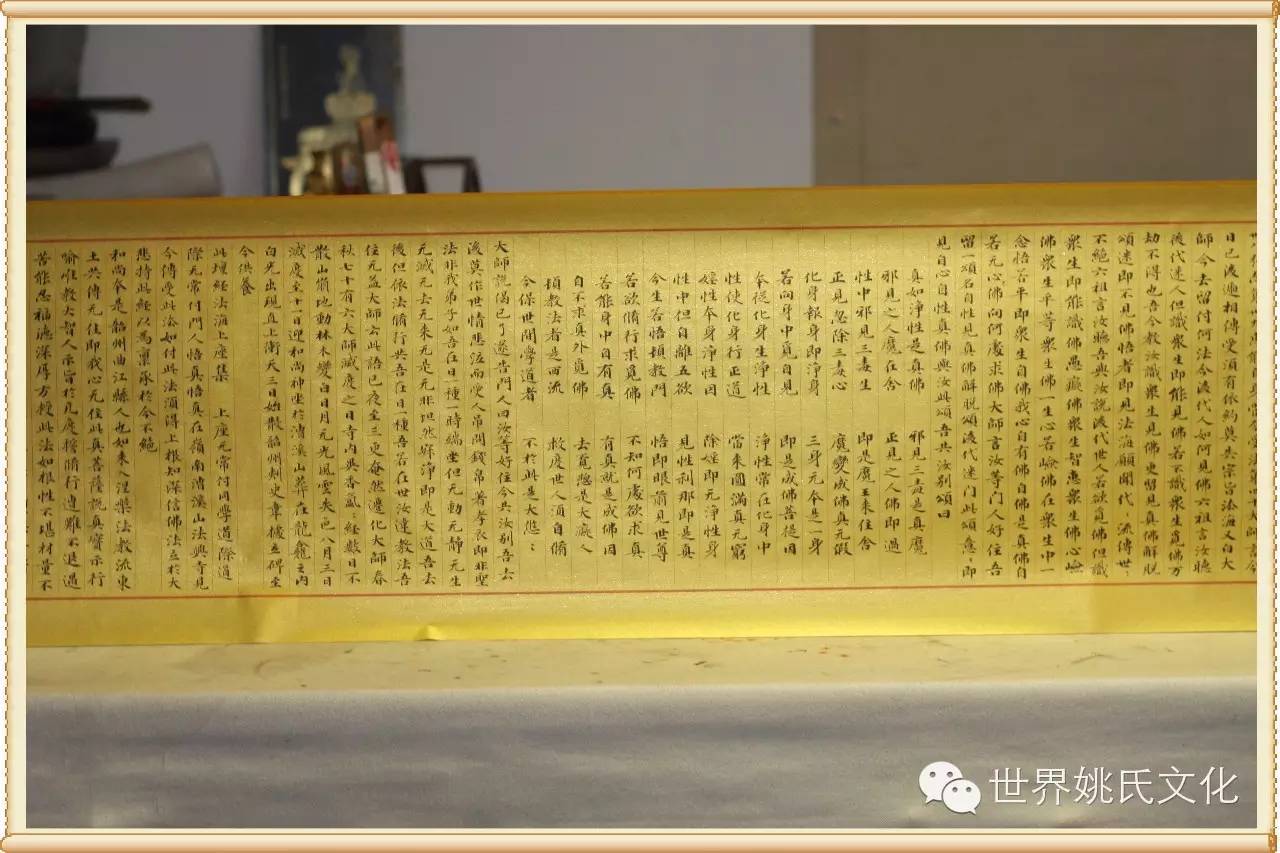 日已後遞相傳受須有依約莫失宗旨法海又白大
師今去留付何法今後代人如何見佛六祖言汝聽
後代迷人但識衆生即能見佛若不識衆生覓佛万
劫不得也吾今教汝識衆生見佛更留見真佛解脱
頌迷即不見佛悟者即見法海願聞代〻流傳世〻
不絶六祖言汝聽吾與汝説後代世人若欲覓佛但識
衆生即能識佛愚癡佛衆生智惠衆生佛心嶮
佛衆生平等衆生佛一生心若嶮佛在衆生中一
念悟若平即衆生自佛我心自有佛自佛是真佛自
若无心佛向何處求佛大師言汝等門人好住吾
留一頌名自性見真佛解脱頌後代迷門此頌意〻即
見自心自性真佛與汝此頌吾共汝别頌曰
真如淨性是真佛 邪見三毒是真魔
邪見之人魔在舍 正見之人佛即過
性中邪見三毒生 即是魔王來住舍
正見忽除三毒心 魔變成佛真无假
化身報身即淨身 三身元夲是一身
若向身中覓自見 即是成佛菩提因
夲從化身生淨性 淨性常在化身中
性使化身行正道 當來圓滿真无窮
婬性夲身淨性因 除婬即无淨性身
性中但自離五欲 見性刹那即是真
今生若悟頓教門 悟即眼前見世尊
若欲脩行求覓佛 不知何處欲求真
若能身中自有真 有真就是成佛因
自不求真外覓佛 去覓惣是大癡人
頓教法者是西流 救度世人須自脩
今保世間學道者 不於此是大悠〻
大師説偈已了遂告門人曰汝等好住今共汝别吾去
後莫作世情悲泣而受人吊問錢帛著孝衣即非聖
法非我弟子如吾在日一種一時端坐但无動无静无生
无滅无去无來无是无非坦然寂淨即是大道吾去
後但依法脩行共吾在日一種吾若在世汝違教法吾
住无益大師云此語已夜至三更奄然遷化大師春
秋七十有六大師滅度之日寺内異香氳〻經數日不
散山崩地動林木變白日月无光風雲失色八月三日
滅度至十一日迎和尚神坐於漕溪山葬在龍龕之内
白光出現直上衝天三日始散韶州刺史韋據立碑至
今供養
此壇經法海上座集 上座无常付同學道漈道
漈无常付門人悟真悟真在嶺南漕溪山法興寺見
今傳受此法如付此法須得上根知深信佛法立於大
悲持此經以為稟承於今不絶
和尚夲是韶州曲江縣人也如來入涅槃法教流東
土共傳无住即我心无住此真菩薩説真寶示行
喻唯教大智人示旨於凡度擔脩行遭難不退遇
苦能忍福德深厚方授此法如根性不堪材量不
世界姚氏文化